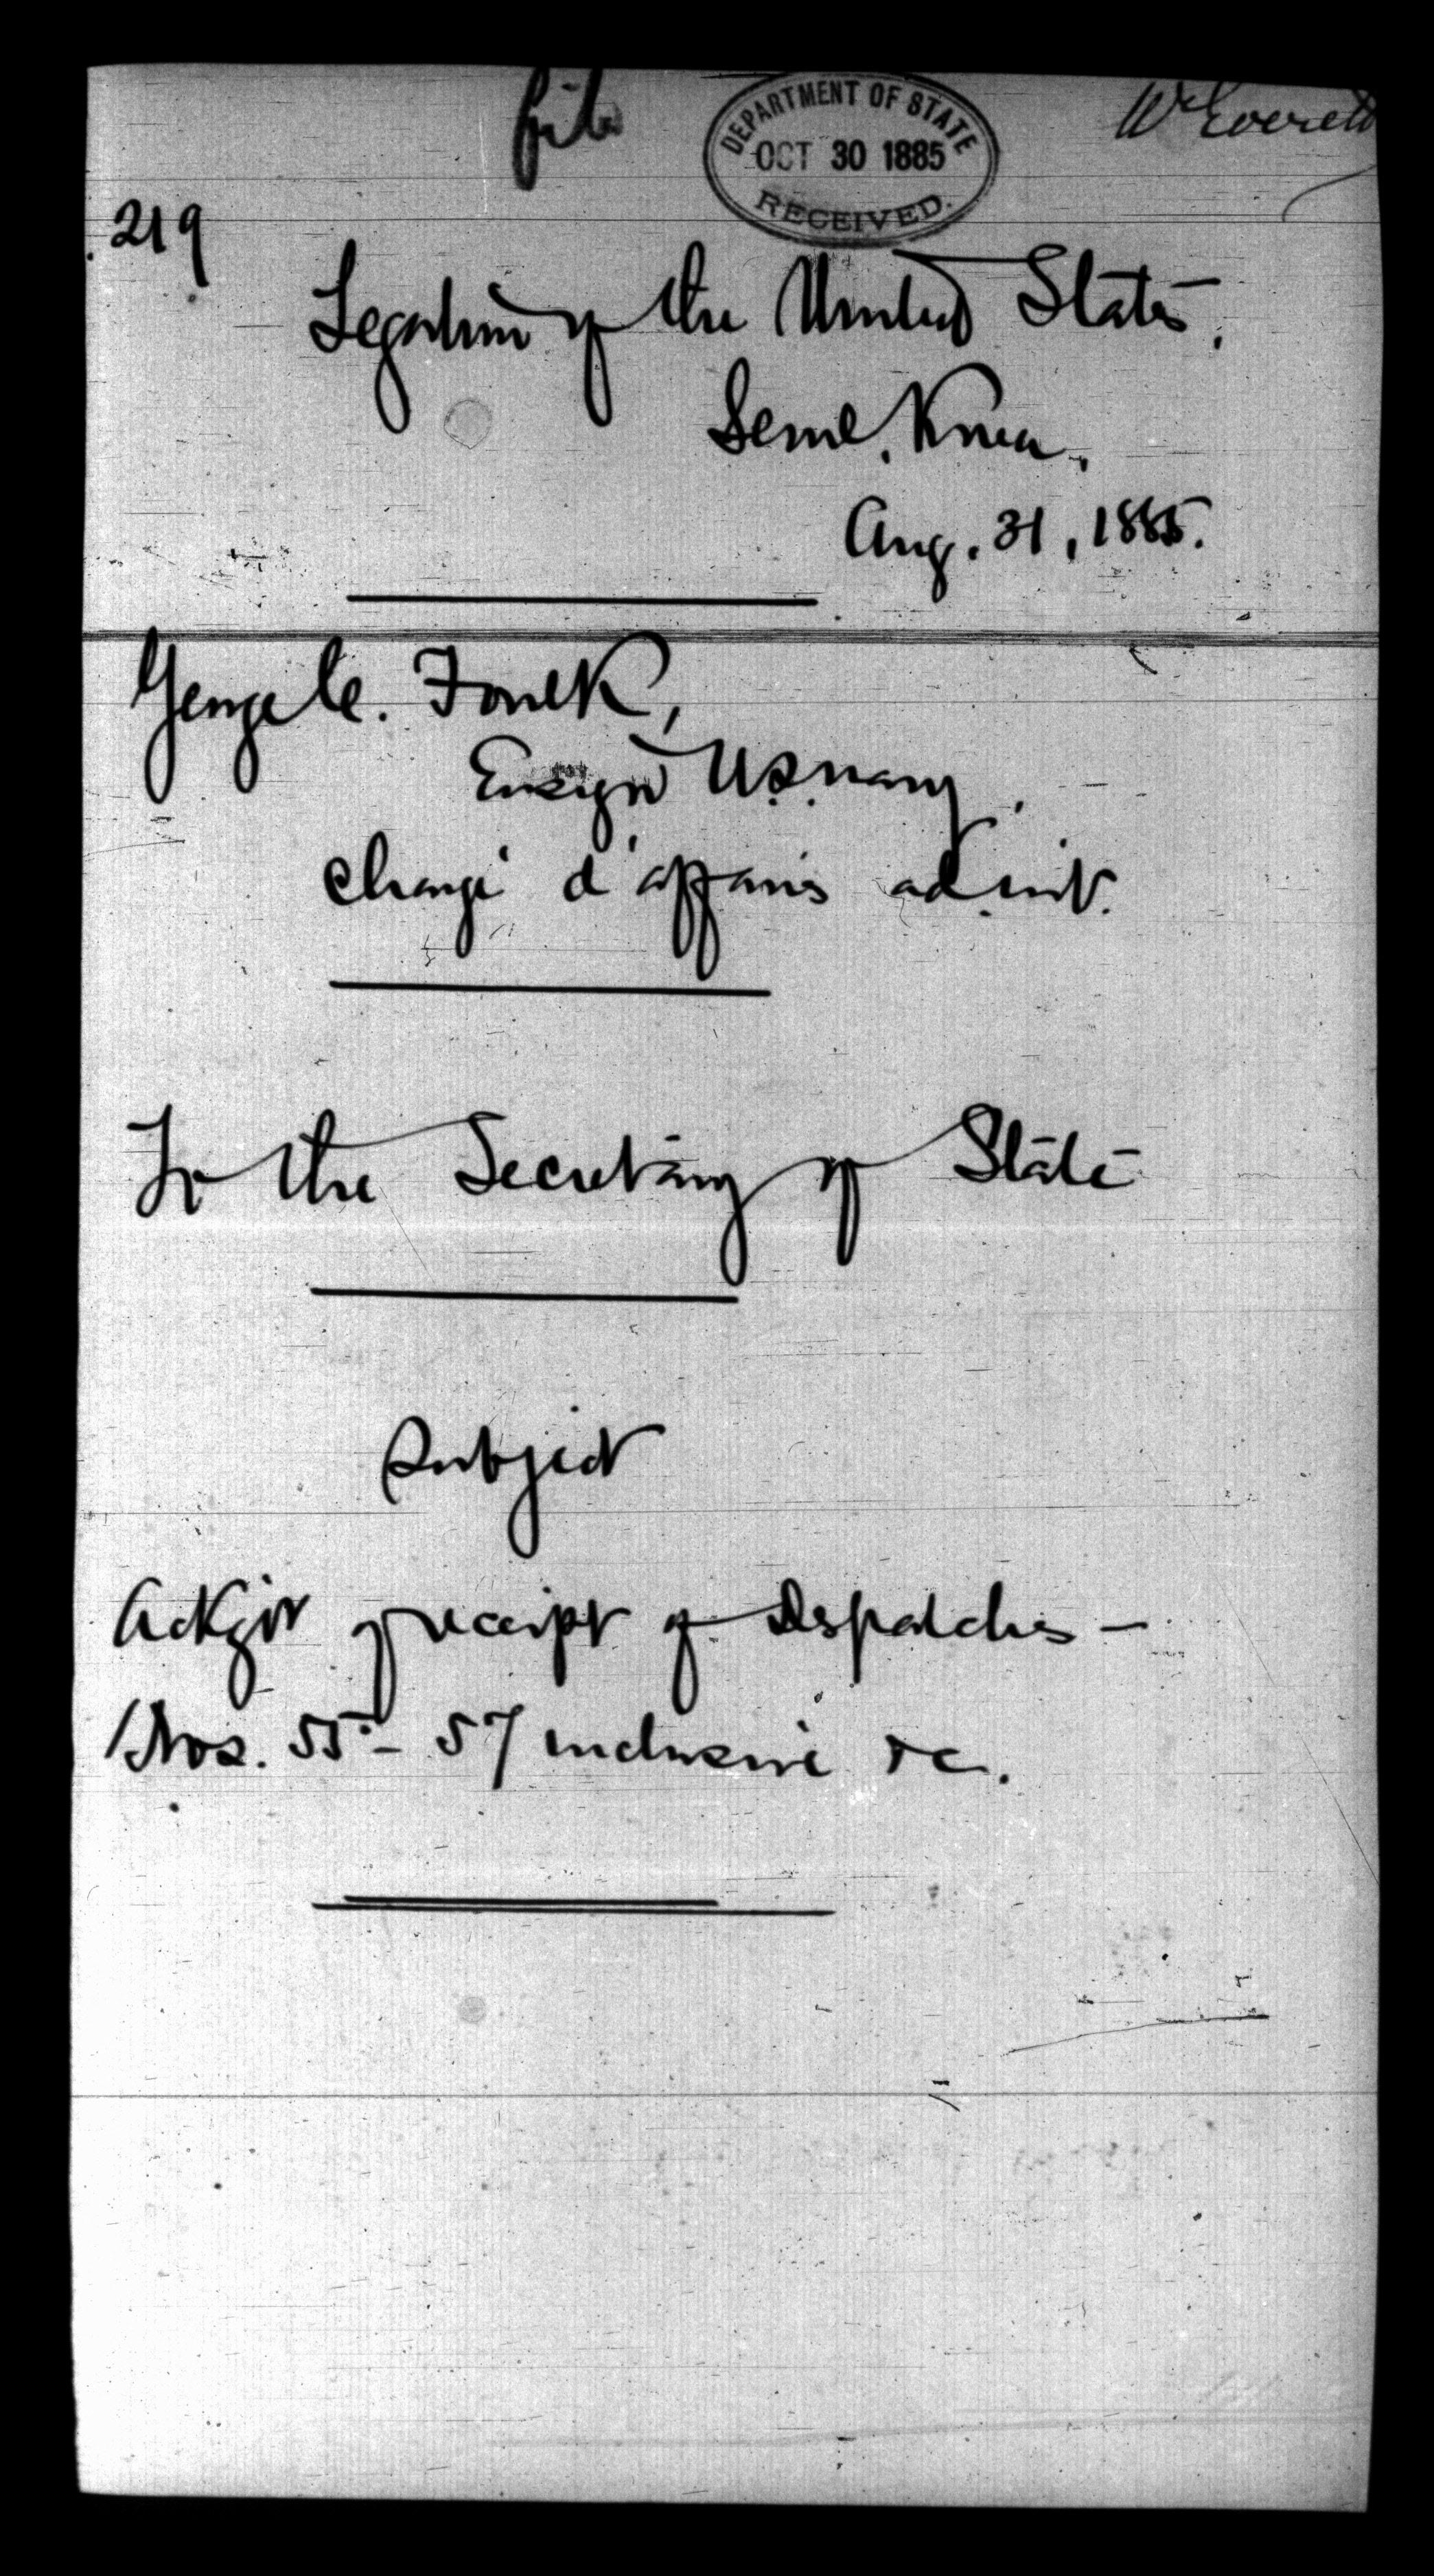 file
DEPARTMENT OF STATE
OCT 30 1885
RECEIVED.
Mr Everett
219
Legation of the United States,
Seoul, Korea,
Aug. 31, 1885.
George C. Foulk,
Ensign U.S. Navy,
chargé d'affaires ad. int.
To the Secretary of State
Subject
Ackgt of receipt of Despatches -
Nos. 55 - 57 inclusive &c.